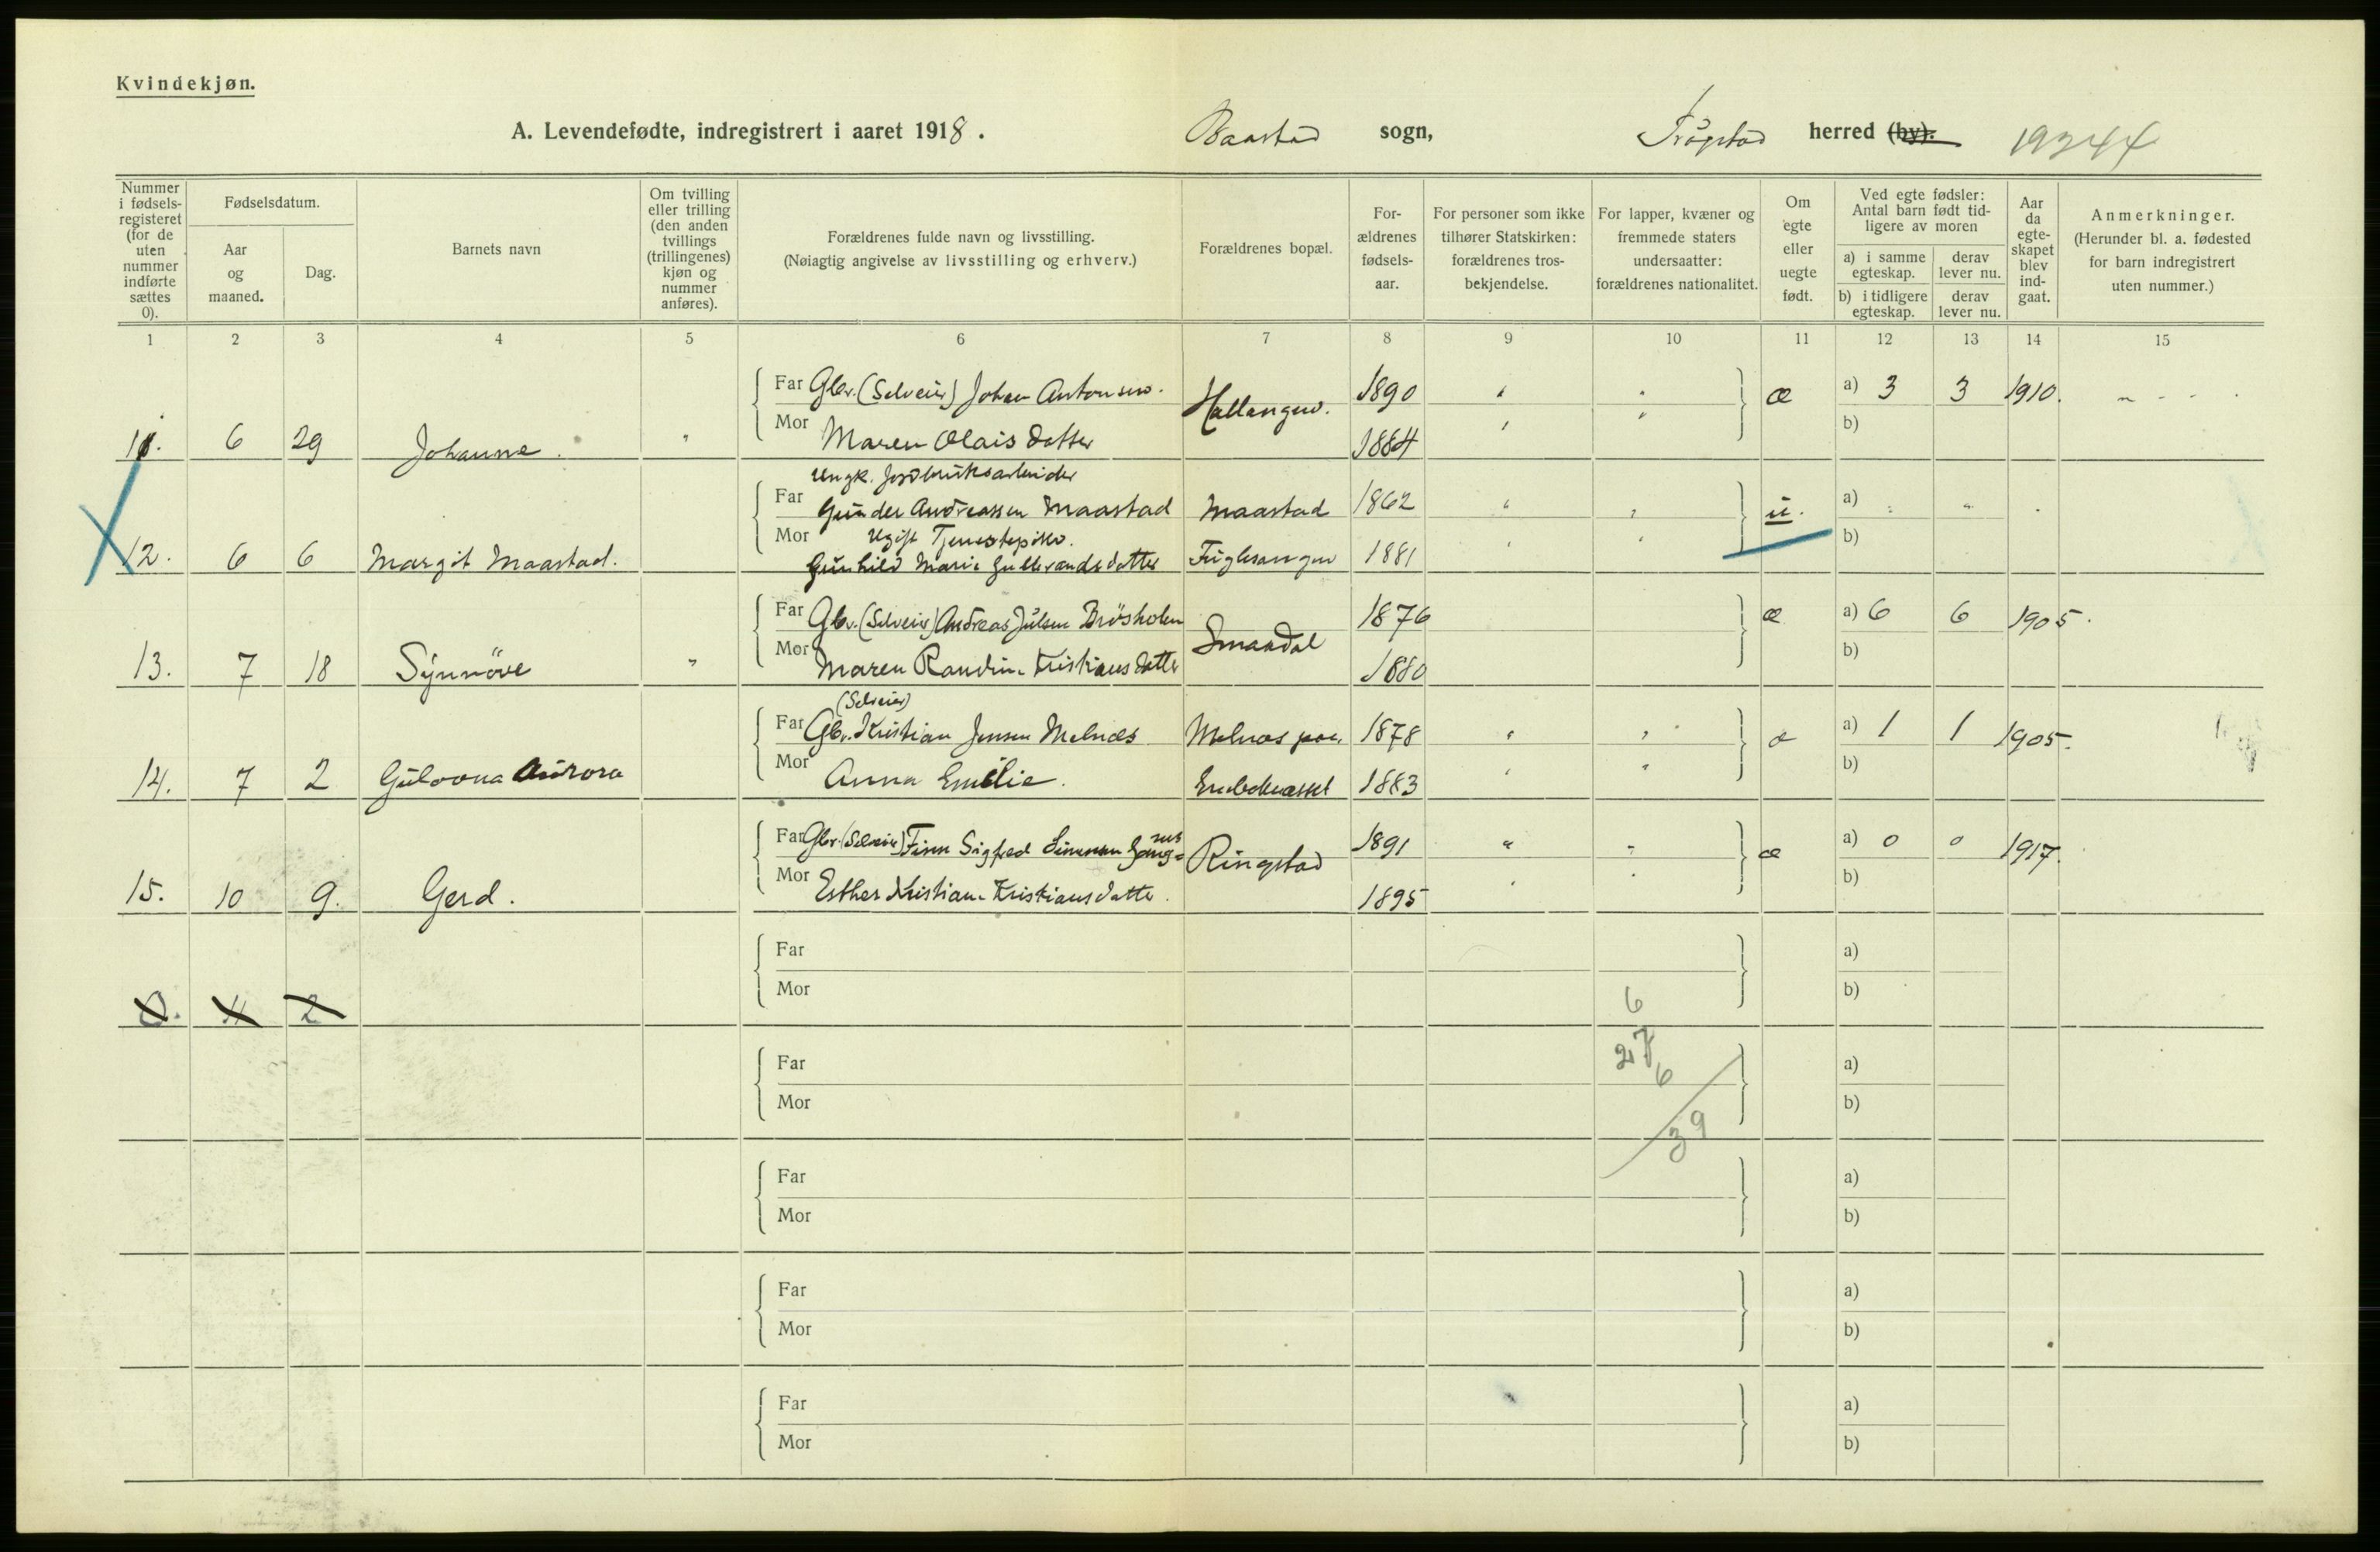 Kvindekjøn.
A. Levendefødte, indregistrert i aaret 1918. Baastad sogn, Trøgstad herred (by). 19344
Nummer i fødsels-registeret (for de uten nummer indførte sættes 0).
Fødselsdatum.
Aar og maaned.
Dag.
Barnets navn
Om tvilling eller trilling (den anden tvillings (trillingenes) kjøn og nummer anføres).
Forældrenes fulde navn og livsstilling.
(Nøiagtig angivelse av livsstilling og erhverv.)
Forældrenes bopæl.
For-ældrenes fødsels-aar.
For personer som ikke tilhører Statskirken: forældrenes tros-bekjendelse.
For lapper, kvæner og fremmede staters undersaatter: forældrenes nationalitet.
Om egte eller uegte født.
Ved egte fødsler: Antal barn født tid-ligere av moren
a) i samme egteskap.
derav lever nu.
b) i tidligere egteskap.
derav lever nu.
Aar da egte-skapet blev ind-gaat.
Anmerkninger.
(Herunder bl. a. fødested for barn indregistrert uten nummer.)
1 2 3 4 5 6 7 8 9 10 11 12 13 14 15
Far Gbr. (Selveier) Johan Antonsen. Hallangen. 1890 " " æ a) 3 3 1910.
11. 6 29 Johanne. " Mor Maren Olaisdatter 1884 " " b)
Ungk. Jordbruksarbeider
Far Gunder Andreassen Maastad Maastad 1862 " " u. a) " " "
Ugift Tjenestepike.
12. 6 6 Margit Maastad. Mor Gunhild Marie Gulbrandsdatter Fuglesangen 1881 " " b)
Far Gbr. (Selveier) Andreas Julsen Brösholen Smaadal 1876 æ a) 6 6 1905.
13. 7 18 Synnöve " Mor Maren Randine Kristiansdatter 1880 b)
(Selveier)
Far Gbr. Kristian Jensen Melnæs Melnæs 1878 " " æ a) 1 1 1905.
14. 7 2 Gulovna Aurora Mor Anna Emilie. 1883 " " b)
Far Gbr. (Selveier) Finn Sigfred Ringstad 1891 " " æ a) 0 0 1917.
15. 10 9. Gerd. Mor Esther Kristiane Kristiansdatter. 1895 " " b)
Far a)
0. 11 2 Mor 6 b)
Far 27 a)
6
Mor b)
39
Far a)
Mor b)
Far a)
Mor b)
Far a)
Mor b)